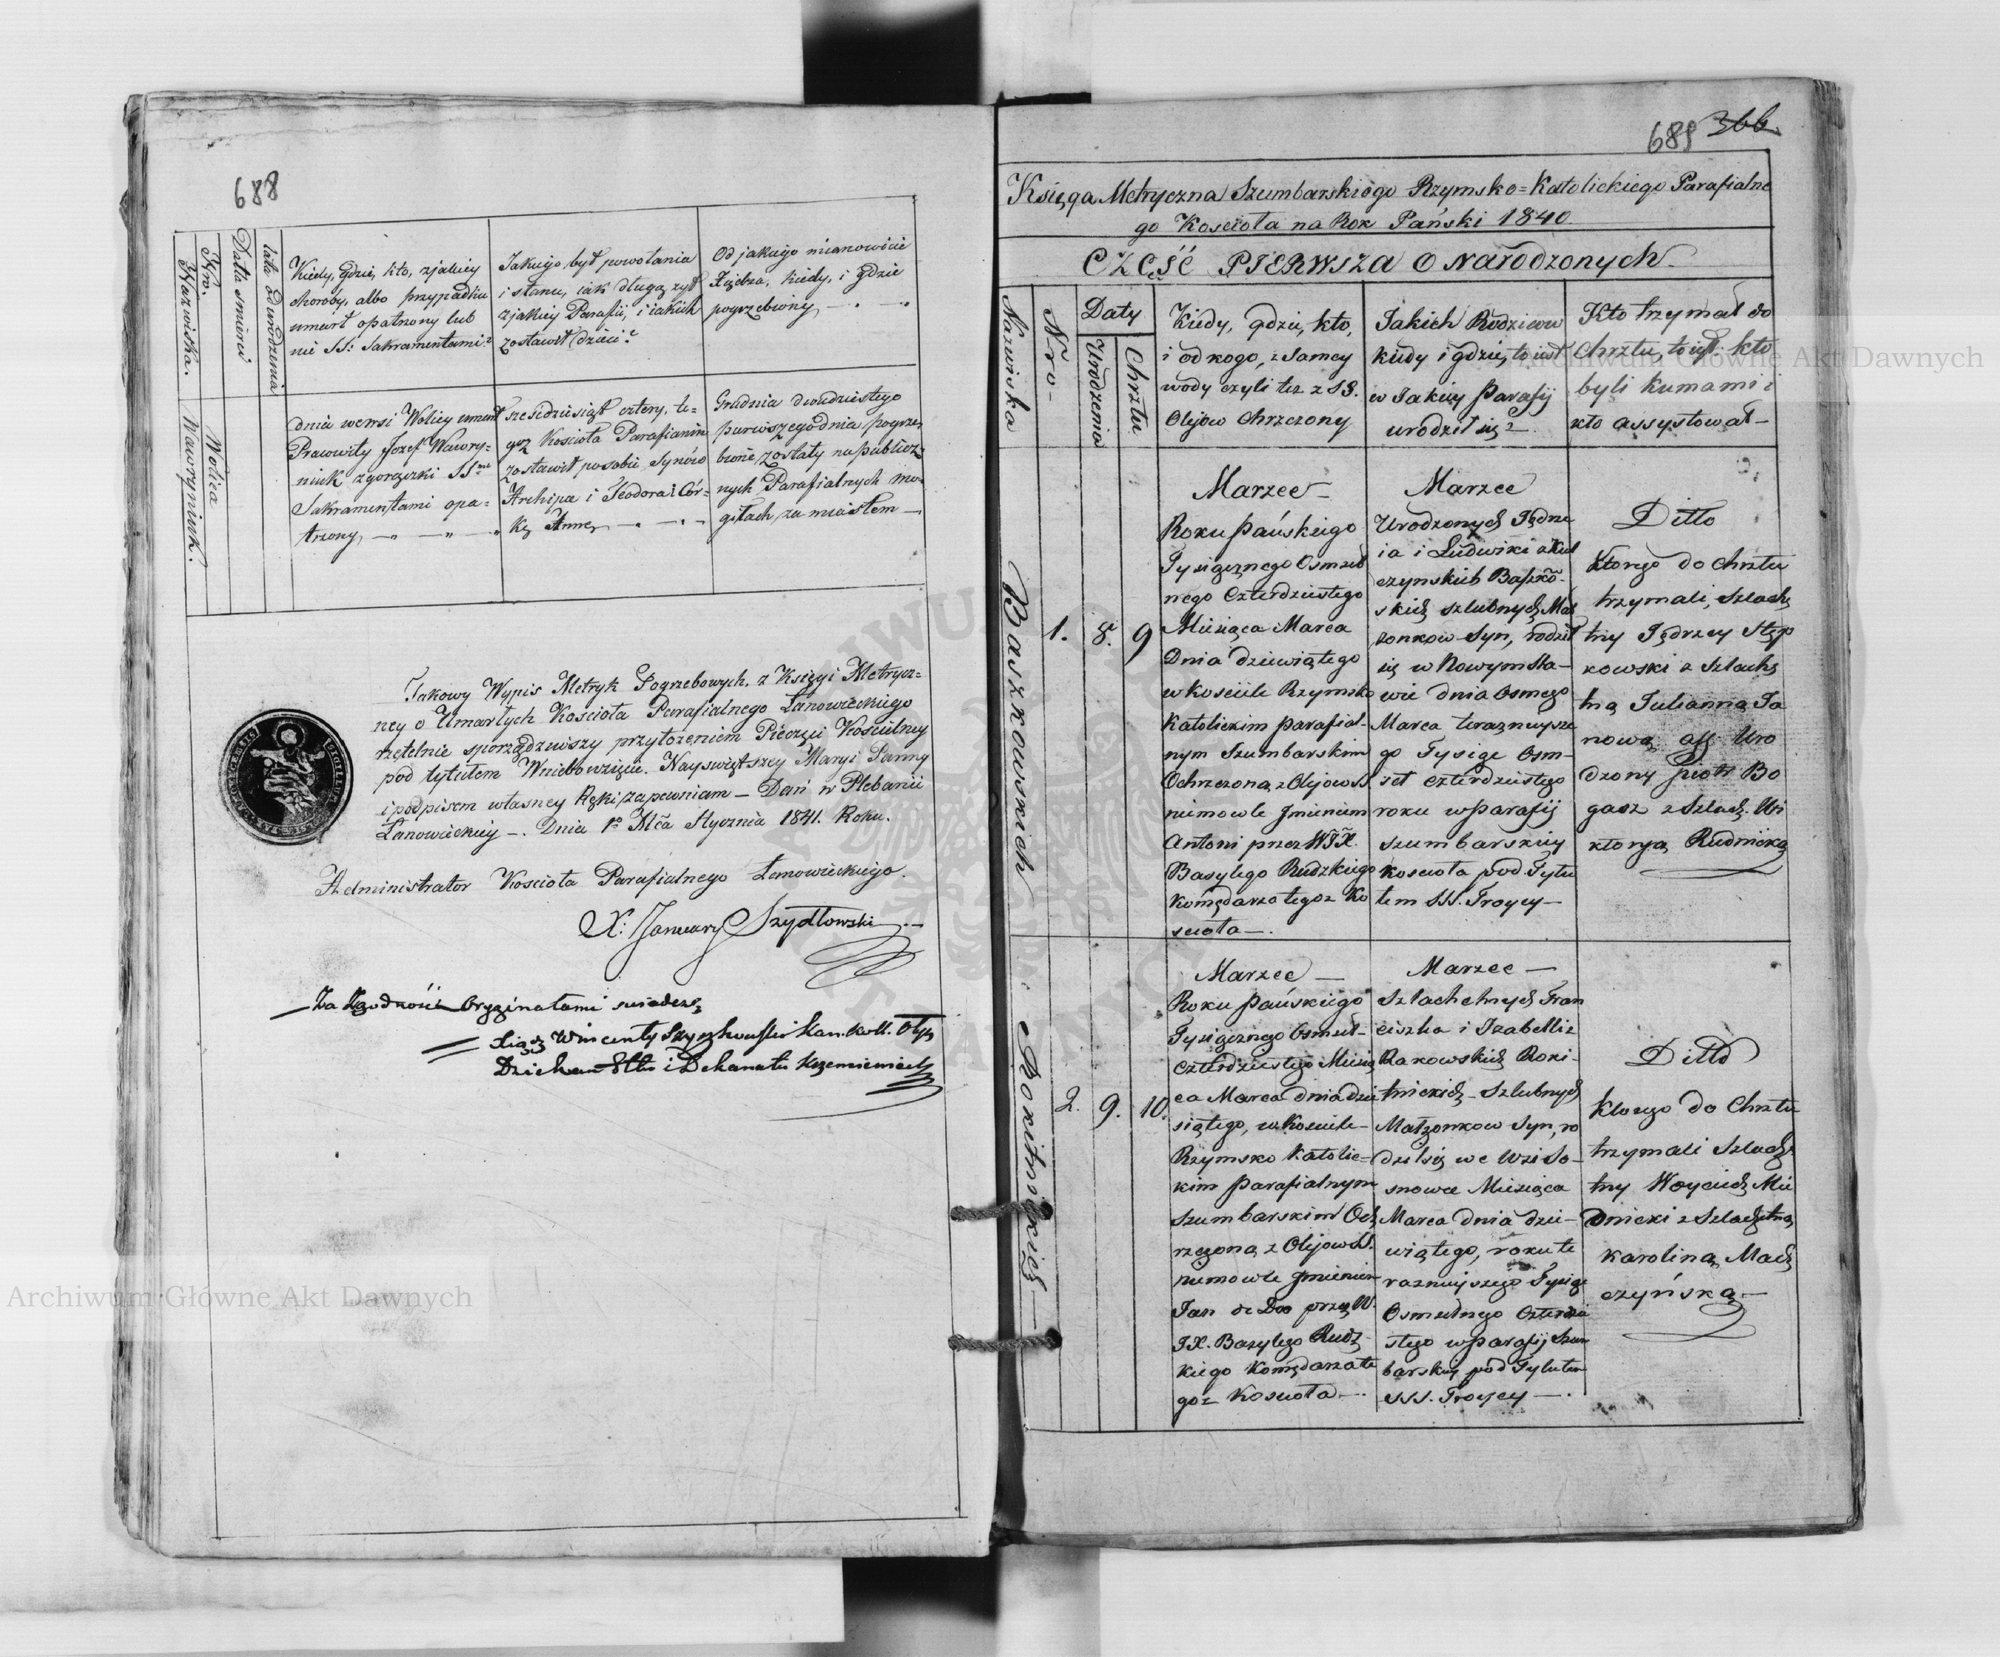 688
Nro.
Nazwiska.
Data smierci
lata od urodzenia
Kiedy, gdzie, kto, z jakiey
choroby, albo przypadku
umarł opatrzony lub
nie SS: Sakramentami?
Jakiego był powołania
i stanu, jak długo żył
z jakiey Parafii, i iakich
zostawił dzieci?
Od jakiego mianowicie
Xiędza, kiedy, i gdzie
pogrzebiony
Wolica
Nawryniuk.
dnia we wsi Wolicy umarł
Prawowity Jozef Wawry-
niuk z gorączki SS.mi
Sakramentami opa-
trzony
szesdziesiąt cztery, te-
goż Kościoła Parafianin
zostawił po sobie Synów
Archipa i Teodora i Cór-
kę Annę
Grudnia dwudziestego
pierwszego dnia pogrze-
bione zostały na publicz-
nych Parafialnych mo-
giłach za miastem
Takowy Wypis Metryk Pogrzebowych, z Księgi Metrycz-
ney o Umarłych Kościoła Parafialnego Łanowieckiego
rzetelnie sporządziwszy przyłożeniem Pieczęci Kościelney
pod tytułem Wniebowzięcia Nayświętszey Maryi Panny
i podpisem własney Ręki zapewniam – Dań w Plebanii
Łanowieckiey –. Dnia 1º Mca Stycznia 1841. Roku.
Administrator Kościoła Parafialnego Łanowieckiego.
X: January Szydłowski
Za Zgodność z Oryginałami swiadczę
Xiądz Wincenty Szyszkowski Kan. Koll. Ołyc.
Dziekan Sttu i Dekanatu Krzemieniec
689 366
Księga Metryczna Szumbarskiego Rzymsko=Katolickiego Parafialne
go Kościoła na Rok Pański 1840
CZĘŚĆ PIERWSZA O Narodzonych
Nazwiska
Nro
Daty
Urodzenia
Chrztu
Kiedy, gdzie, kto,
i od kogo, z samey
wody czyli też z SS.
Olejow Chrzczony
Jakich Rodzicow
kiedy i gdzie, to iest
w Jakiey Parafij
urodził się?
Kto trzymał do
Chrztu, to iest: kto
byli kumami i
kto assystował
Baszkowskich
1. 8. 9
Marzec
Roku Pańskiego
Tysiącznego Osmset
nego Czterdziestego
Miesiąca Marca
Dnia dziewiątego
w Kościele Rzymsko
Katolickim Parafial-
nym Szumbarskim
Ochrzczono z Olejow SS.
niemowle Jmieniem
Antoni przez WJX.
Bazylego Rudzkiego
Komędarza tegoż Ko
scioła
Marzec
Urodzonych Jędrze
ia i Ludwiki z Kul
czynskich Baszko-
skich szlubnych Mał
żonkow Syn, rodził
się w Nowym Sta-
wie dnia Osmego
Marca teraznieysze
go Tysiąc Osm-
set czterdziestego
roku w Parafij
Szumbarskiey
Kościoła pod Tytu
łem SSS. Troycy
Ditto
Ktorego do Chrztu
trzymali, Szlache
tny Jędrzey Stęp
kowski z Szlache
tną Julianną Ja
nową ass. Uro
dzony Piotr Bo
gacz z Szlach. Wi
ktoryą Rudnicką
Rokitnickich
2. 9. 10.
Marzec
Roku Pańskiego
Tysiącznego Osmset-
Czterdziestego Miesią
ca Marca dnia dzie
siątego, w Kościele
Rzymsko Katolic=
kim Parafialnym
Szumbarskim Och
rzczono z Olejow SS.
niemowle Jmieniem
Jan de Deo przez W.
JX. Bazylego Rudz-
kiego Komędarza te
goż Kościoła
Marzec
Szlachetnych Fran
ciszka i Izabelli z
Rakowskich Roki-
tnickich Szlubnych
Małżonkow Syn, ro
dził się we Wsi So-
snowce Miesiąca
Marca dnia dzie-
wiątego, roku te
raznieyszego Tysiąc
Osmsetnego Czterdzie
stego w Parafij Szum
barskiey pod Tytułem
SSS. Troycy
Ditto
Ktorego do Chrztu
trzymali Szlache
tny Woyciech Mie
dnicki z Szlachetną
Karoliną Mach
czyńską
Archiwum Główne Akt Dawnych
Archiwum Główne Akt Dawnych